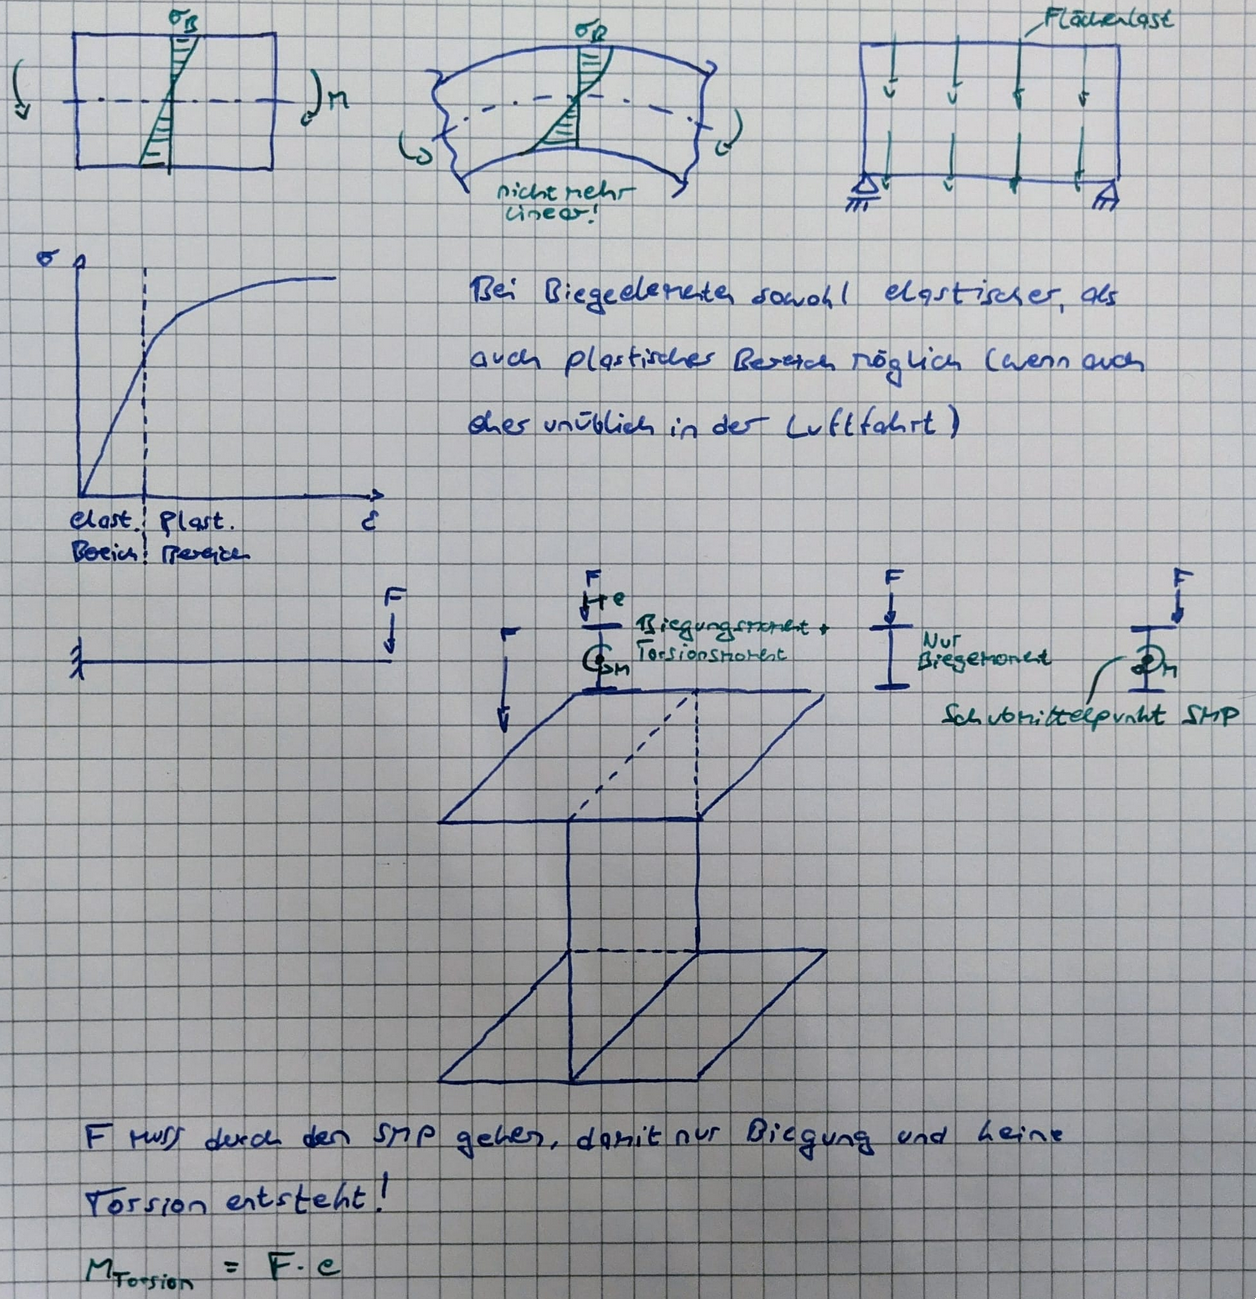 σB
M
σB
nicht mehr
linear!
Flächenlast
σ
ε
elast. Plast.
Bereich Bereich
Bei Biegeelementen sowohl elastischer, als
auch plastischer Bereich möglich (wenn auch
eher unüblich in der Luftfahrt)
F
F
F
e
Biegungsmoment +
Torsionsmoment
M
F
Nur
Biegemoment
F
M
Schubmittelpunkt SMP
F muss durch den SMP gehen, damit nur Biegung und keine
Torsion entsteht!
MTorsion = F · e